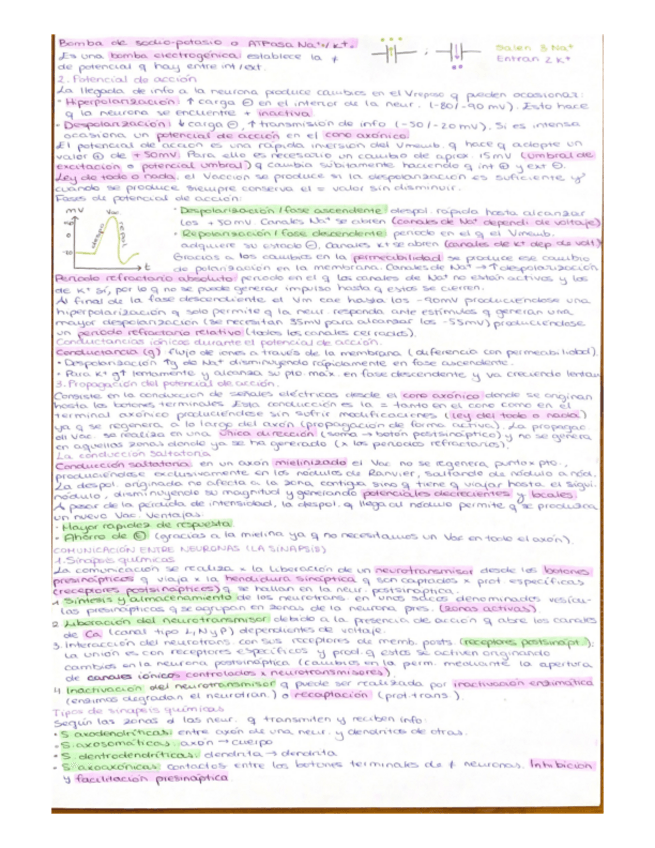 Bomba de sodio-potasio o ATPasa Na+/K+.
Es una bomba electrogénica establece la ≠
de potencial q hay entre int/ext.
Salen 3 Na+
Entran 2 K+
2. Potencial de acción
La llegada de info a la neurona produce cambios en el Vreposo q pueden ocasionar:
· Hiperpolarización: ↑ carga ⊖ en el interior de la neur. (-80/-90 mV). Esto hace
q la neurona se encuentre + inactiva.
· Despolarización: ↓ carga ⊖, ↑ transmisión de info (-50/-20mV). Si es intensa
ocasiona un potencial de acción en el cono axónico.
El potencial de acción es una rápida inversión del Vmemb. q hace q adopte un
valor ⊕ de +50mV. Para ello es necesario un cambio de aprox. 15mV (umbral de
excitación o potencial umbral) q cambia súbitamente haciendo q int ⊕ y ext ⊖.
Ley de todo o nada: el Vacción se produce si la despolarización es suficiente y
cuando se produce siempre conserva el = valor sin disminuir.
Fases de potencial de acción:
mV
Vac.
despol.
repol.
t
· Despolarización/fase ascendente: despol. rápida hasta alcanzar
los +50mV. Canales Na+ se abren (canales de Na+ depend. de voltaje)
· Repolarización/fase descendente: periodo en el q el Vmemb.
adquiere su estado ⊖. Canales K+ se abren (canales de K+ dep. de volt)
Gracias a los cambios en la permeabilidad se produce ese cambio
de polarización en la membrana. Canales de Na+ → ↑ despolarización
Periodo refractario absoluto: periodo en el q los canales de Na+ no están activos y los
de K+ sí, por lo q no se puede generar impulso hasta q estos se cierren.
Al final de la fase descendiente el Vm cae hasta los -90mV produciéndose una
hiperpolarización q solo permite q la neur. responda ante estímulos q generan una
mayor despolarización (se necesitan 35mV para alcanzar los -55mV) produciéndose
un periodo refractario relativo (todos los canales cerrados).
Conductancias iónicas durante el potencial de acción.
Conductancia (g): flujo de iones a través de la membrana (diferencia con permeabilidad).
· Despolarización ↑g de Na+ disminuyendo rápidamente en fase ascendente.
· Para K+ g↑ lentamente y alcanza su pto. max. en fase descendente y va creciendo lentam.
3. Propagación del potencial de acción.
Consiste en la conducción de señales eléctricas desde el cono axónico donde se originan
hasta los botones terminales. Esta conducción es la = tanto en el cono como en el
terminal axónico produciéndose sin sufrir modificaciones (ley del todo o nada)
ya q se regenera a lo largo del axón (propagación de forma activa). La propagac.
del Vac. se realiza en una única dirección (soma → botón postsináptico) y no se genera
en aquellas zonas donde ya se ha generado (x los periodos refractarios).
La conducción saltatoria
Conducción saltatoria: en un axón mielinizado el Vac no se regenera punto x pto.,
produciéndose exclusivamente en los nódulos de Ranvier, saltando de nódulo a nód.
La despol. originada no afecta a la zona contigua sino q tiene q viajar hasta el sigui.
nódulo, disminuyendo su magnitud y generando potenciales decrecientes y locales.
A pesar de la pérdida de intensidad, la despol. q llega al nódulo permite q se produzca
un nuevo Vac. Ventajas:
· Mayor rapidez de respuesta.
· Ahorro de Ⓔ (gracias a la mielina ya q no necesitamos un Vac en todo el axón).
COMUNICACIÓN ENTRE NEURONAS (LA SINAPSIS)
1. Sinapsis químicas
La comunicación se realiza x la liberación de un neurotransmisor desde los botones
presinápticos q viaja x la hendidura sináptica q son captados x prot. específicas
(receptores postsinápticos) q se hallan en la neur. postsináptica.
1 Síntesis y almacenamiento de los neurotrans. en unos sacos denominados vesícu-
las presinápticas q se agrupan en zonas de la neurona pres. (zonas activas)
2 Liberación del neurotransmisor debido a la presencia de acción q abre los canales
de Ca (canal tipo L, N y P) dependientes de voltaje.
3. Interacción del neurotrans. con sus receptores de memb. posts. (receptores postsinápt.);
La unión es con receptores específicos y prod. q estos se activen originando
cambios en la neurona postsináptica (cambios en la perm. mediante la apertura
de canales iónicos controlados x neurotransmisores).
4 Inactivación del neurotransmisor q puede ser realizada por inactivación enzimática
(enzimas degradan el neurotran.) o recaptación (prot. trans.).
Tipos de sinapsis químicas
Según las zonas d las neur. q transmiten y reciben info:
· S. axodendríticas: entre axón de una neur. y dendritas de otras.
· S. axosomáticas: axón → cuerpo
· S. dentrodendríticas: dendrita → dendrita
· S. axoaxónicas: contactos entre los botones terminales de ≠ neuronas. Inhibición
y facilitación presináptica